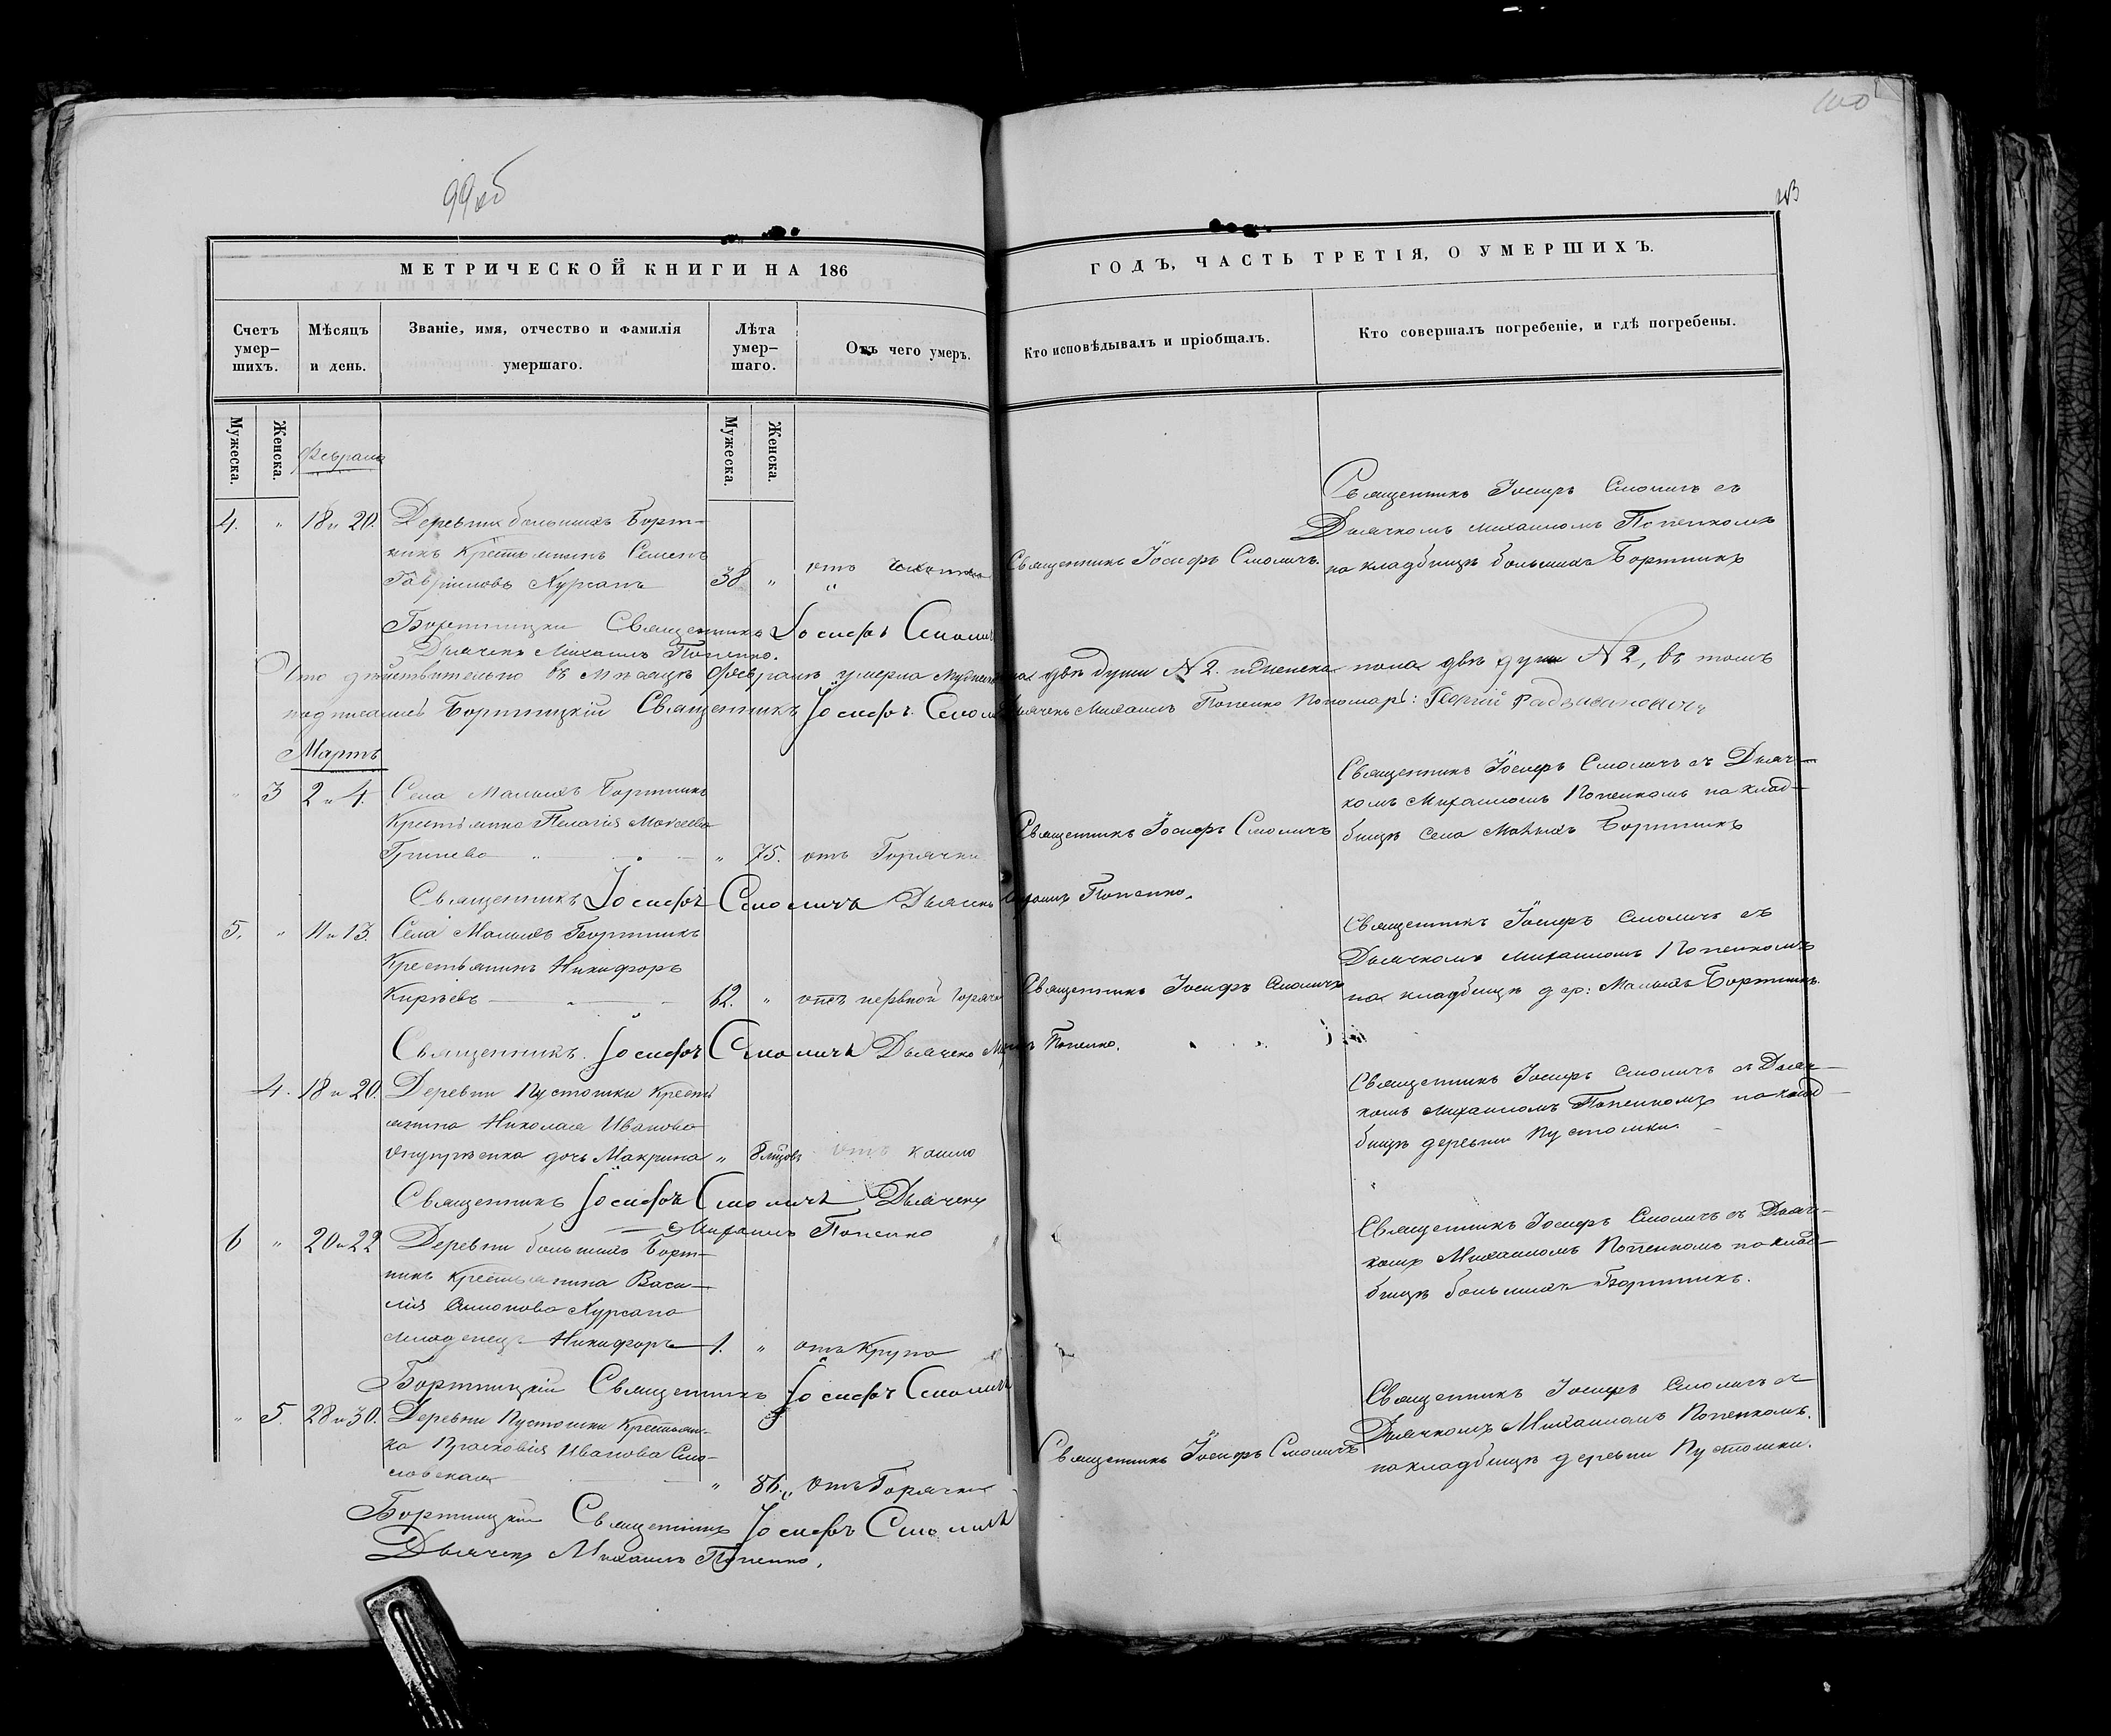 99об
100
МЕТРИЧЕСКОЙ КНИГИ НА 186
ГОДЪ, ЧАСТЬ ТРЕТІЯ, О УМЕРШИХЪ.
Счетъ умер-
шихъ.
Мѣсяцъ
и день.
Званіе, имя, отчество и фамилія
умершаго.
Лѣта
умер-
шаго.
Отъ чего умеръ.
Кто исповѣдывалъ и пріобщалъ.
Кто совершалъ погребеніе, и гдѣ погребены.
Мужеска.
Женска.
Мужеска.
Женска.
Февраль
4. " 18 и 20. Деревни большихъ Борт-
никъ Крестьянинъ Семенъ
Гавріиловъ Курсанъ 38 " отъ
Священникъ Іосифъ Смоличъ.
Священникъ Іосифъ Смоличъ съ
Дьячкомъ Михаиломъ Попенкомъ
на кладбищѣ большихъ Бортникъ
Священникъ Іосифъ Смоличъ
Дьячекъ Михаилъ Попенко.
Что дѣйствительно въ мѣсяцѣ Февралѣ умерло двѣ души № 2. женска пола двѣ души № 2, въ томъ
подписались Бортницкій Священникъ Іосифъ Смоличъ Дьячекъ Михаилъ Попенко Пономарь: Георгій
Мартъ
" 3 2 и 4. Села Малыхъ Бортникъ
Крестьянка Пелагія
Гринева " 75. отъ Горячки
Священникъ Іосифъ Смоличъ
Священникъ Іосифъ Смоличъ съ Дьяч-
комъ Михаиломъ Попенкомъ на клад-
бищѣ села Малыхъ Бортникъ
Священникъ Іосифъ Смоличъ Дьячекъ Михаилъ Попенко.
5. " 11 и 13. Села Малыхъ Бортникъ
Крестьянинъ Никифоръ
62. " отъ нервной
Священникъ Іосифъ Смоличъ
Священникъ Іосифъ Смоличъ съ
Дьячкомъ Михаиломъ Попенкомъ
на кладбищѣ дер: Малыхъ Бортникъ.
Священникъ Іосифъ Смоличъ Дьячекъ Попенко.
4. 18 и 20. Деревни Пустошки Кресть-
янина Николая Иванова
дочь Макрина " 8 отъ кашлю
Священникъ Іосифъ Смоличъ съ Дьяч-
комъ Михаиломъ Попенкомъ на клад-
бищѣ деревни Пустошки.
Священникъ Іосифъ Смоличъ Дьячекъ
Михаилъ Попенко
6 " 20 и 22 Деревни большихъ Борт-
никъ Крестьянина Васи-
лія Курсана
младенецъ Никифоръ 1. " отъ Крупа
Священникъ Іосифъ Смоличъ съ Дьяч-
комъ Михаиломъ Попенкомъ на клад-
бищѣ большихъ Бортникъ.
Бортницкій Священникъ Іосифъ Смоличъ
" 5. 28 и 30. Деревни Пустошки Крестьян-
ка Прасковія Иванова
" 86. отъ Горячки
Священникъ Іосифъ Смоличъ
Священникъ Іосифъ Смоличъ съ
Дьячкомъ Михаиломъ Попенкомъ.
на кладбищѣ деревни Пустошки.
Бортницкій Священникъ Іосифъ Смоличъ
Дьячекъ Михаилъ Попенко.